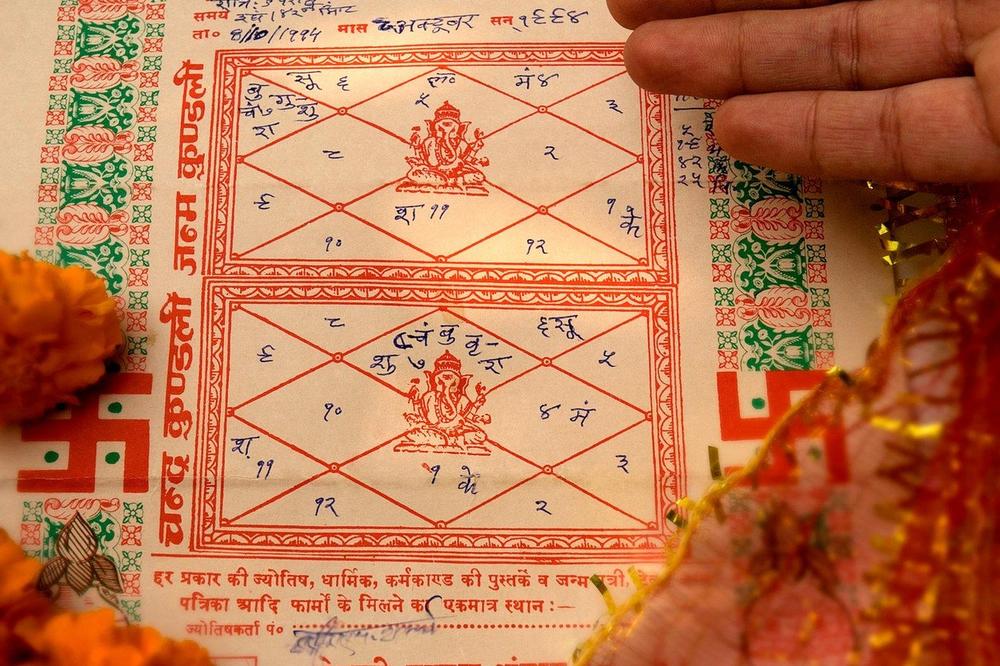 समय
ता० 8/10/1994 मास अक्टूबर सन् १९९४
जन्म कुण्डली
बु सू ६ ल० मं४
चं७ गु- शु ५ ३
रा
८ २
९ श ११ १ के
१० १२
चन्द्र कुण्डली
८ चं बु बृ- ६सू
९ शु ७ रा ५
१० ४ मं
श ११ १ के ३
१२ २
हर प्रकार की ज्योतिष, धार्मिक, कर्मकाण्ड की पुस्तकें व जन्म
पत्रिका आदि फार्मों के मिलने का एकमात्र स्थान :—
ज्योतिषकर्ता पं०